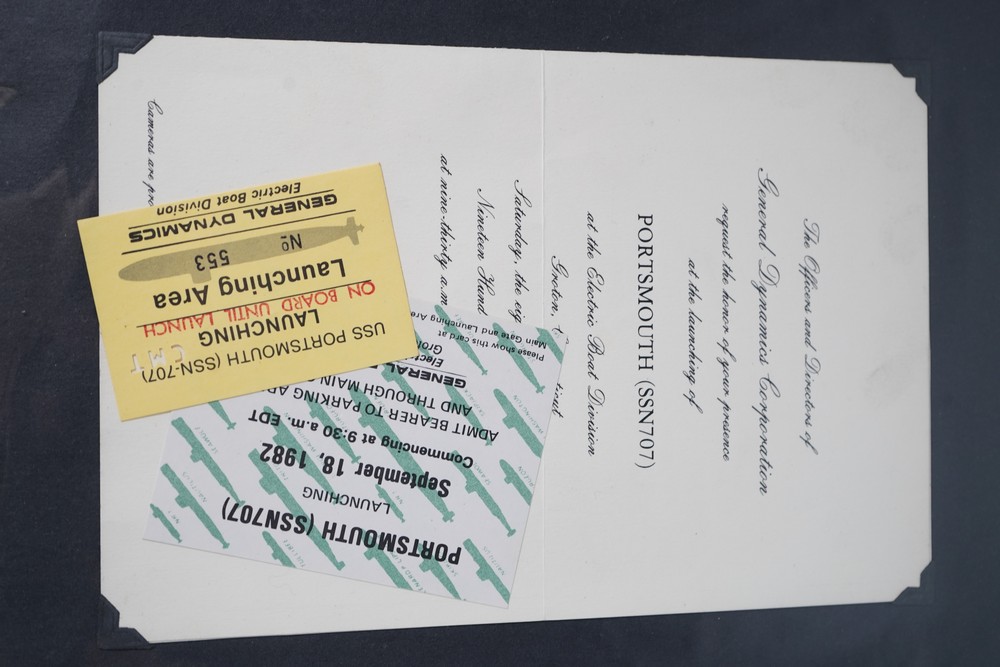 The Officers and Directors of
General Dynamics Corporation
request the honor of your presence
at the launching of
PORTSMOUTH (SSN707)
at the Electric Boat Division
Groton,
Saturday, the
Nineteen Hund
at nine-thirty a.m
Cameras are pro
USS PORTSMOUTH (SSN-707)
CMT
LAUNCHING
ON BOARD UNTIL LAUNCH
Launching Area
Nº 553
GENERAL DYNAMICS
Electric Boat Division
PORTSMOUTH (SSN707)
LAUNCHING
September 18, 1982
Commencing at 9:30 a.m. EDT
ADMIT BEARER TO PARKING
AND THROUGH MAIN
GENERAL
Please show this card at
Main Gate and Launching